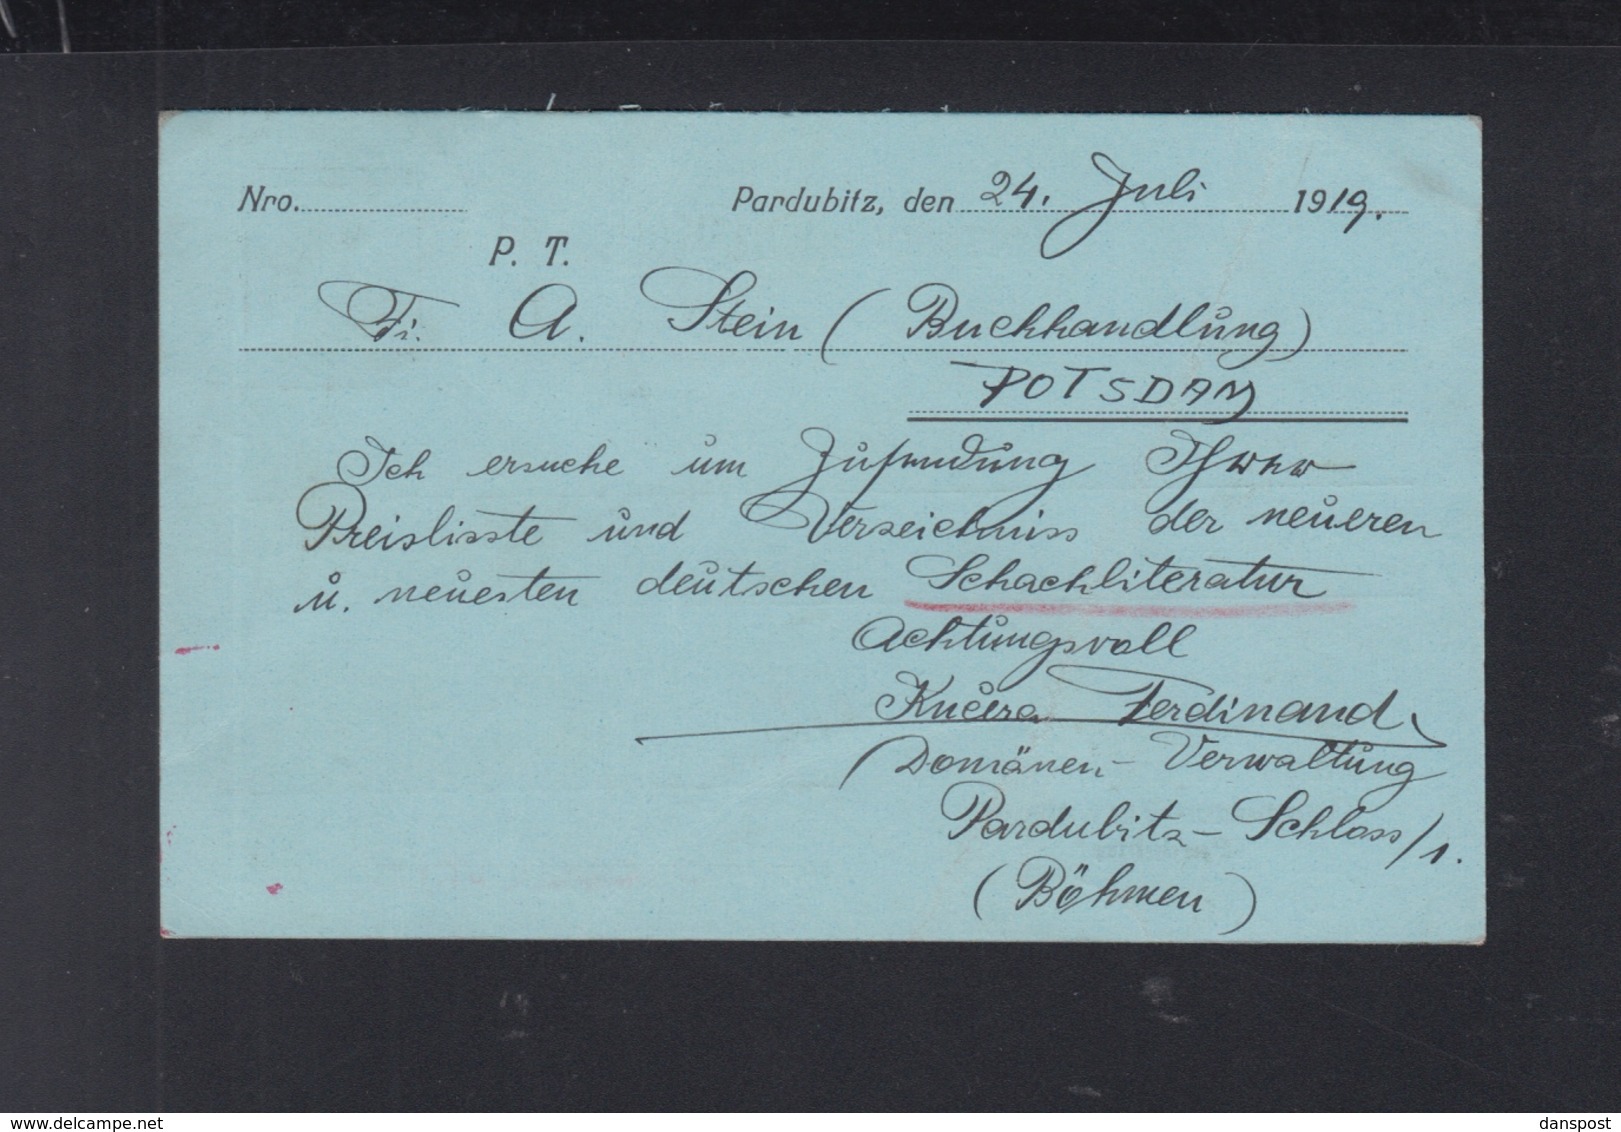 Nro. Pardubitz, den 24. Juli 1919.
P. T.
Fi. A. Stein (Buchhandlung)
POTSDAM
Ich ersuche um Zusendung Ihrer
Preislisste und Verzeichniss der neueren
u. neuesten deutschen Schachliteratur
Achtungsvoll
Kučera Ferdinand
(Domänen-Verwaltung
Pardubitz-Schloss/1.
(Böhmen)
www.delcampe.net
danspost